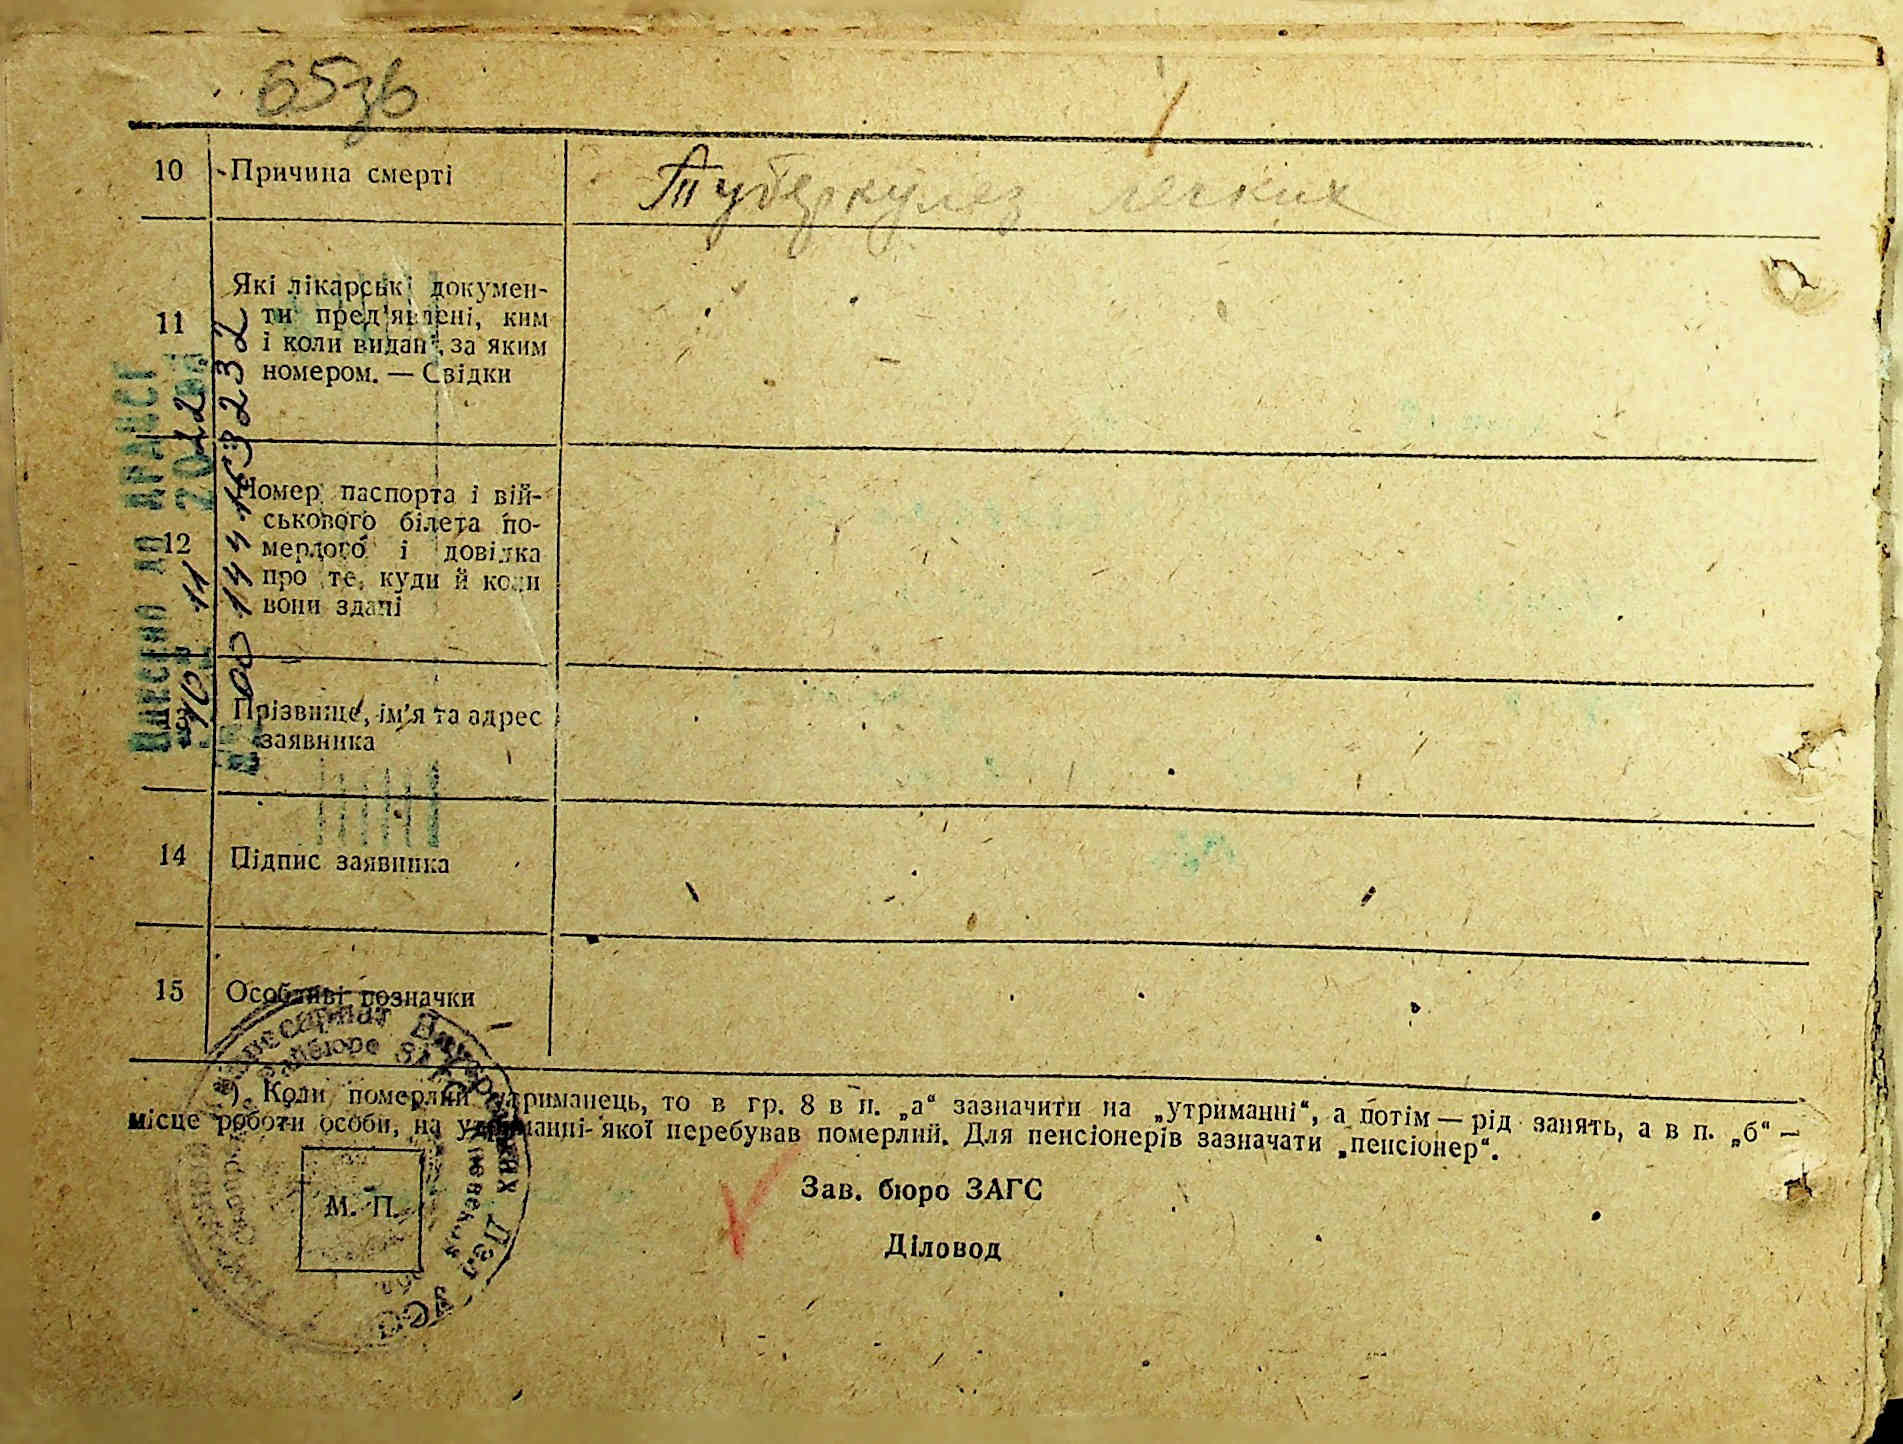 65зв
10 Причина смерті Туберкулез легких
11 Які лікарські докумен-
ти пред'явлені, ким
і коли видані, за яким
номером. — Свідки
12 Номер паспорта і вій-
ськового білета по-
мерлого і довідка
про те, куди й коли
вони здані
Прізвище, ім'я та адрес
заявника
14 Підпис заявника
15 Особливі позначки
*). Коли померлий утриманець, то в гр. 8 в п. „а“ зазначити на „утриманні“, а потім — рід занять, а в п. „б“ —
місце роботи особи, на утриманні якої перебував померлий. Для пенсіонерів зазначати „пенсіонер“.
Зав. бюро ЗАГС
Діловод
М. П.
Внесено до ДРАЦСГ
10 11 2022
№ 00144163232